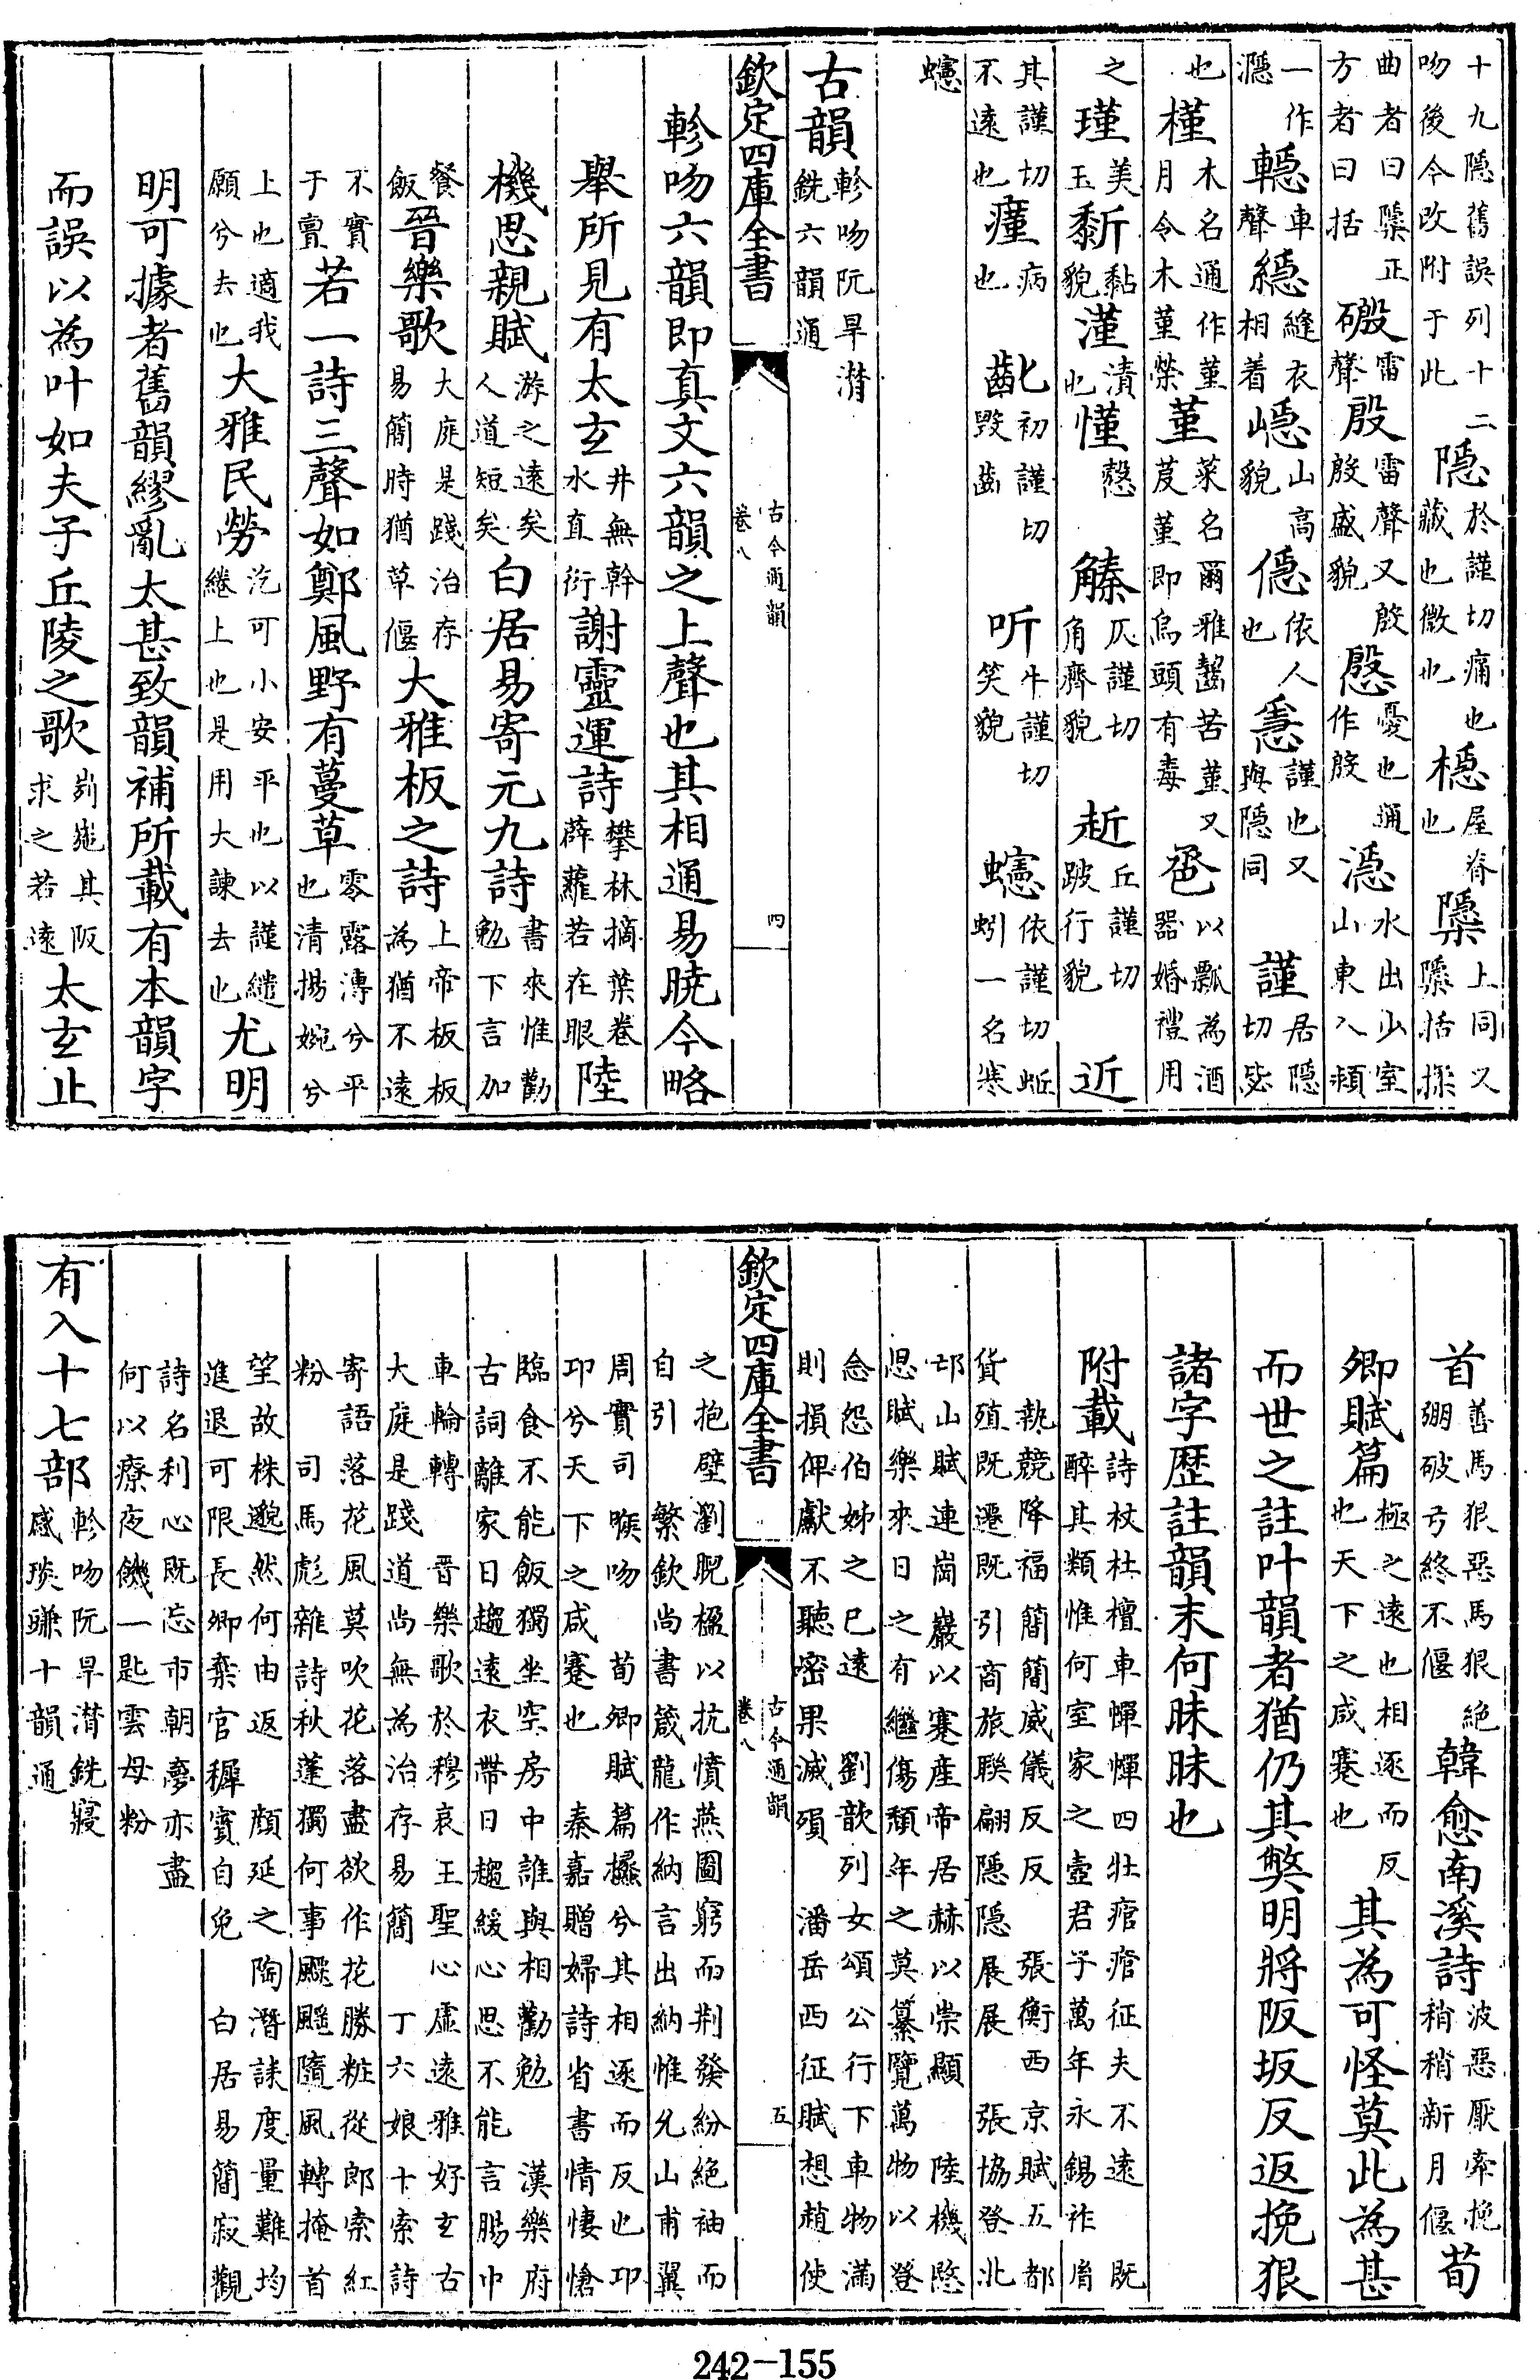 十九隱舊誤列十二吻後今改附于此隱於謹切痛也藏也微也檼屋脊也檃上同又檃括揉
曲者曰檃正方者曰括磤雷聲殷雷聲又殷殷盛貌慇憂也通作殷濦水出少室山東入潁
一作㶏車聲縫衣相着山高貌依人也㥯謹也又與隱同謹居隱切毖
也槿木名通作菫月令木菫榮菫菜名爾雅齧苦菫又芨菫即烏頭有毒卺以瓢為酒器婚禮用
之瑾美玉黏貌漌漬也慬慤仄謹切角齊貌赾丘謹切跛行貌近
其謹切不遠也瘽病也齔初謹切毀齒听牛謹切笑貌依謹切蚯蚓一名寒
古韻軫吻阮旱潸銑六韻通
欽定四庫全書 古今通韻卷八 四
軫吻六韻即真文六韻之上聲也其相通易曉今略
舉所見有太玄井無幹水直衍謝靈運詩攀林摘葉卷薜蘿若在眼陸
機思親賦游之遠矣人道短矣白居易寄元九詩書來惟勸勉下言加
餐飯晉樂歌大庭是踐治存易簡時猶草偃大雅板之詩上帝板板為猶不遠
不實于亶若一詩三聲如鄭風野有蔓草零露漙兮平也清揚婉兮
上也適我願兮去也大雅民勞汔可小安平也以謹繾綣上也是用大諫去也尤明
明可據者舊韻繆亂太甚致韻補所載有本韻字
而誤以為叶如夫子丘陵之歌峛崺其阪求之若遠太玄止
首善馬狠惡馬狠絕弸破弓終不偃韓愈南溪詩波惡厭牽挽稍稍新月偃荀
卿賦篇極之遠也相逐而反也天下之咸蹇也其為可怪莫此為甚
而世之註叶韻者猶仍其獘明將阪坂反返挽狠
諸字歷註韻末何昧昧也
附載詩杕杜檀車幝幝四牡痯痯征夫不遠 既醉其類惟何室家之壼君子萬年永錫祚胤
執競降福簡簡威儀反反 張衡西京賦五都貨殖既遷既引商旅聯翩隱隱展展 張協登北
邙山賦連崗巖以蹇產帝居赫以崇顯 陸機愍思賦樂來日之有繼傷頹年之莫纂覽萬物以登
念怨伯姊之已遠 劉歆列女頌公行下車物滿則損俾獻不聽密果滅殞 潘岳西征賦想趙使
欽定四庫全書 古今通韻卷八 五
之抱璧瀏睨楹以抗憤燕圖窮而荆發紛絕袖而自引 繁欽尚書箴龍作納言出納惟允山甫翼
周實司喉吻 荀卿賦篇欃兮其相逐而反也卬卬兮天下之咸蹇也 秦嘉贈婦詩省書情悽愴
臨食不能飯獨坐空房中誰與相勸勉 漢樂府古詞離家日趨遠衣帶日趨緩心思不能言腸中
車輪轉 晉樂歌於穆哀王聖心虛遠雅好玄古大庭是踐道尚無為治存易簡 丁六娘十索詩
寄語落花風莫吹花落盡欲作花勝粧從郎索紅粉 司馬彪雜詩秋蓬獨何事飄颻隨風轉掩首
望故株邈然何由返 顏延之陶潛誄度量難均進退可限長卿棄官穉賓自免 白居易簡寂觀
詩名利心既忘市朝夢亦盡何以療夜饑一匙雲母粉
有入十七部軫吻阮旱潸銑寢感琰豏十韻通
242-155